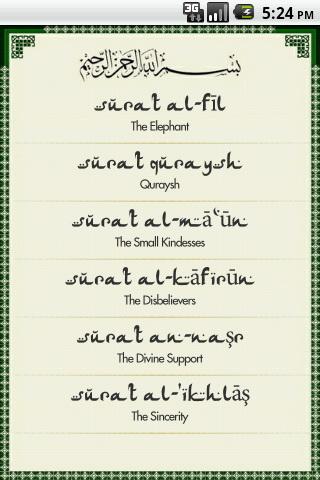 3G
5:24 PM
بسم الله الرحمن الرحيم
sūrat al-fīl
The Elephant
sūrat quraysh
Quraysh
sūrat al-māʿūn
The Small Kindesses
sūrat al-kāfirūn
The Disbelievers
sūrat an-naṣr
The Divine Support
sūrat al-'ikhlāṣ
The Sincerity